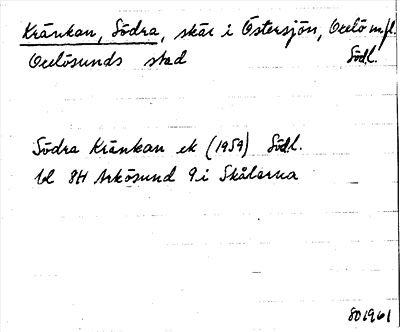 Kränkan, Södra, skär i Östersjön, Oxelö m fl.
Oxelösunds stad Södl.
Södra Kränkan ek (1959) Södl.
bl 8H Arkösund 9i Skålarna
801961